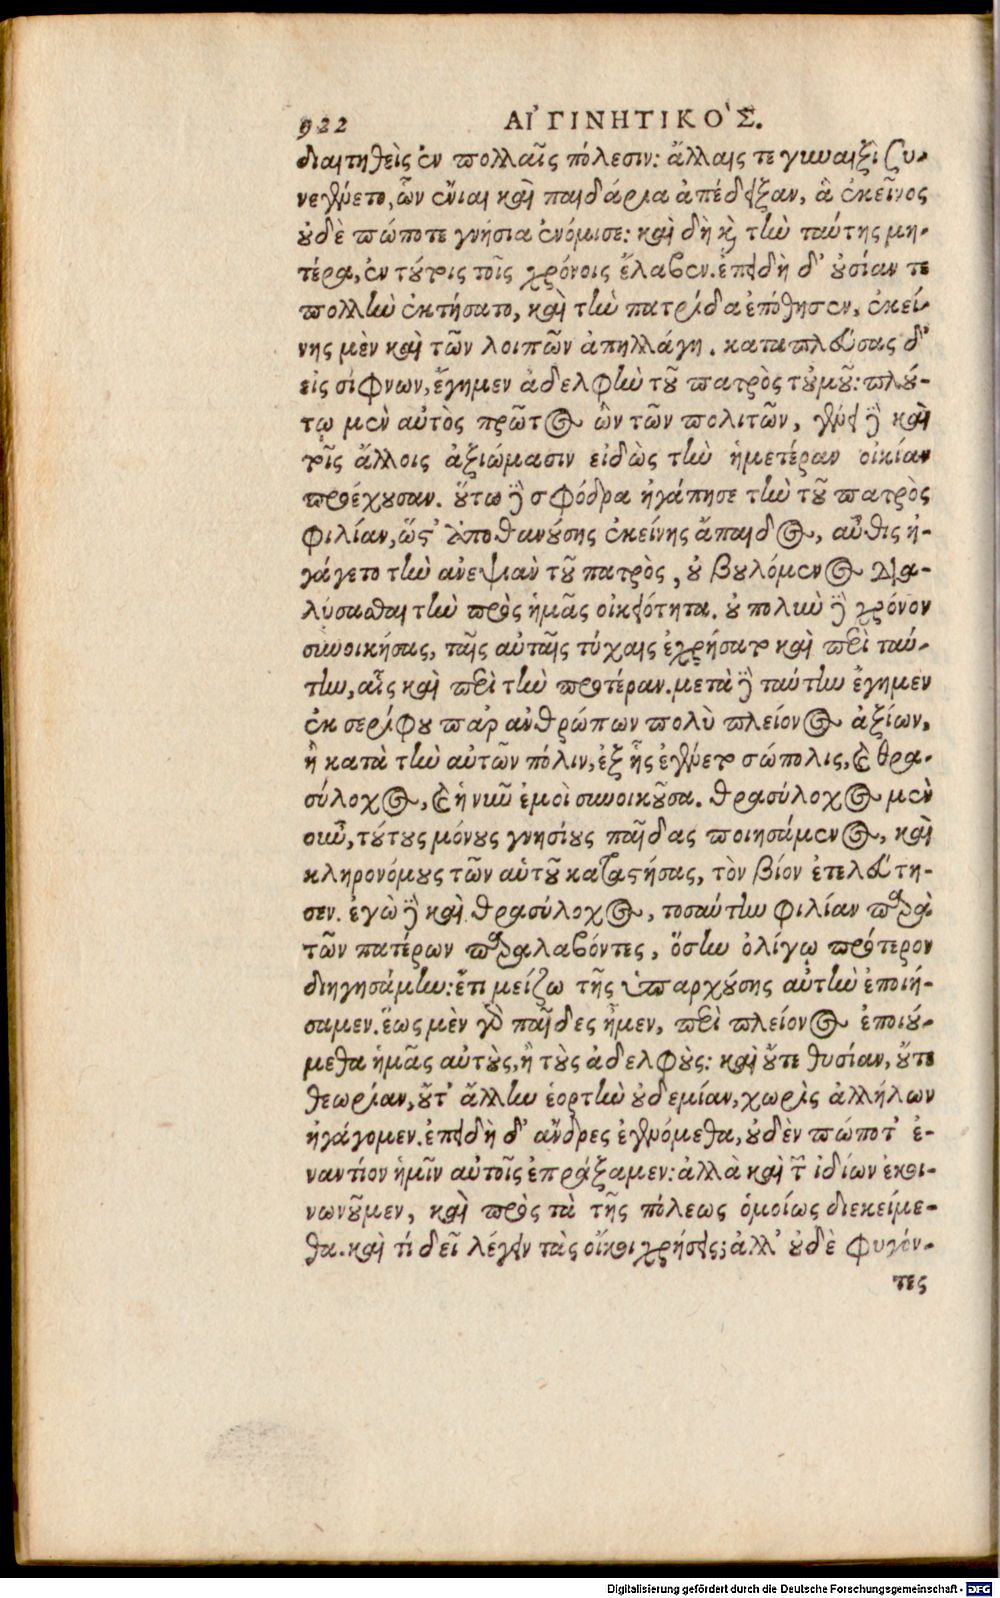 922 ΑἸΓΙΝΗΤΙΚΟ'Σ.
διαιτηθεὶς ἐν πολλαῖς πόλεσιν: ἄλλαις τε γυναιξὶ συ-
νεγένετο, ὧν ἔνιαι καὶ παιδάρια ἀπέδειξαν, ἃ ἐκεῖνος
οὐδὲ πώποτε γνήσια ἐνόμισε: καὶ δὴ καὶ τὴν ταύτης μη-
τέρα, ἐν τούτοις τοῖς χρόνοις ἔλαβεν. ἐπειδὴ δ' οὐσίαν τε
πολλὴν ἐκτήσατο, καὶ τὴν πατρίδα ἐπόθησεν, ἐκεί-
νης μὲν καὶ τῶν λοιπῶν ἀπηλλάγη. καταπλεύσας δ'
εἰς σίφνων, ἔγημεν ἀδελφὴν τοῦ πατρὸς τοὐμοῦ: πλού-
τῳ μὲν αὐτὸς πρῶτος ὢν τῶν πολιτῶν, γένει δὲ καὶ
τοῖς ἄλλοις ἀξιώμασιν εἰδὼς τὴν ἡμετέραν οἰκίαν
προέχουσαν. οὕτω δὲ σφόδρα ἠγάπησε τὴν τοῦ πατρὸς
φιλίαν, ὥστ' ἀποθανούσης ἐκείνης ἄπαιδος, αὖθις ἠ-
γάγετο τὴν ἀνεψιὰν τοῦ πατρὸς, οὐ βουλόμενος δια-
λύσασθαι τὴν πρὸς ἡμᾶς οἰκειότητα. οὐ πολὺν δὲ χρόνον
συνοικήσας, ταῖς αὐταῖς τύχαις ἐχρήσατο καὶ περὶ ταύ-
την, αἷς καὶ περὶ τὴν προτέραν. μετὰ δὲ ταύτην ἔγημεν
ἐκ σερίφου παρ' ἀνθρώπων πολὺ πλείονος ἀξίων,
ἢ κατὰ τὴν αὐτῶν πόλιν, ἐξ ἧς ἐγένετο σώπολις, καὶ θρα-
σύλοχος, καὶ ἡ νῦν ἐμοὶ συνοικοῦσα. θρασύλοχος μὲν
οὖν, τούτους μόνους γνησίους παῖδας ποιησάμενος, καὶ
κληρονόμους τῶν αὑτοῦ καταστήσας, τὸν βίον ἐτελεύτη-
σεν. ἐγὼ δὲ καὶ θρασύλοχος, τοσαύτην φιλίαν παρὰ
τῶν πατέρων παραλαβόντες, ὅσην ὀλίγῳ πρότερον
διηγησάμην: ἔτι μείζω τῆς ὑπαρχούσης αὐτὴν ἐποιή-
σαμεν. ἕως μὲν γὰρ παῖδες ἦμεν, περὶ πλείονος ἐποιού-
μεθα ἡμᾶς αὐτοὺς, ἢ τοὺς ἀδελφοὺς: καὶ οὔτε θυσίαν, οὔτε
θεωρίαν, οὔτ' ἄλλην ἑορτὴν οὐδεμίαν, χωρὶς ἀλλήλων
ἠγάγομεν. ἐπειδὴ δ' ἄνδρες ἐγενόμεθα, οὐδὲν πώποτ' ἐ-
ναντίον ἡμῖν αὐτοῖς ἐπράξαμεν: ἀλλὰ καὶ τῶν ἰδίων ἐκοι-
νωνοῦμεν, καὶ πρὸς τὰ τῆς πόλεως ὁμοίως διεκείμε-
θα. καὶ τί δεῖ λέγειν τὰς οἴκοι χρήσεις; ἀλλ' οὐδὲ φυγόν-
τες
Digitalisierung gefördert durch die Deutsche Forschungsgemeinschaft - DFG